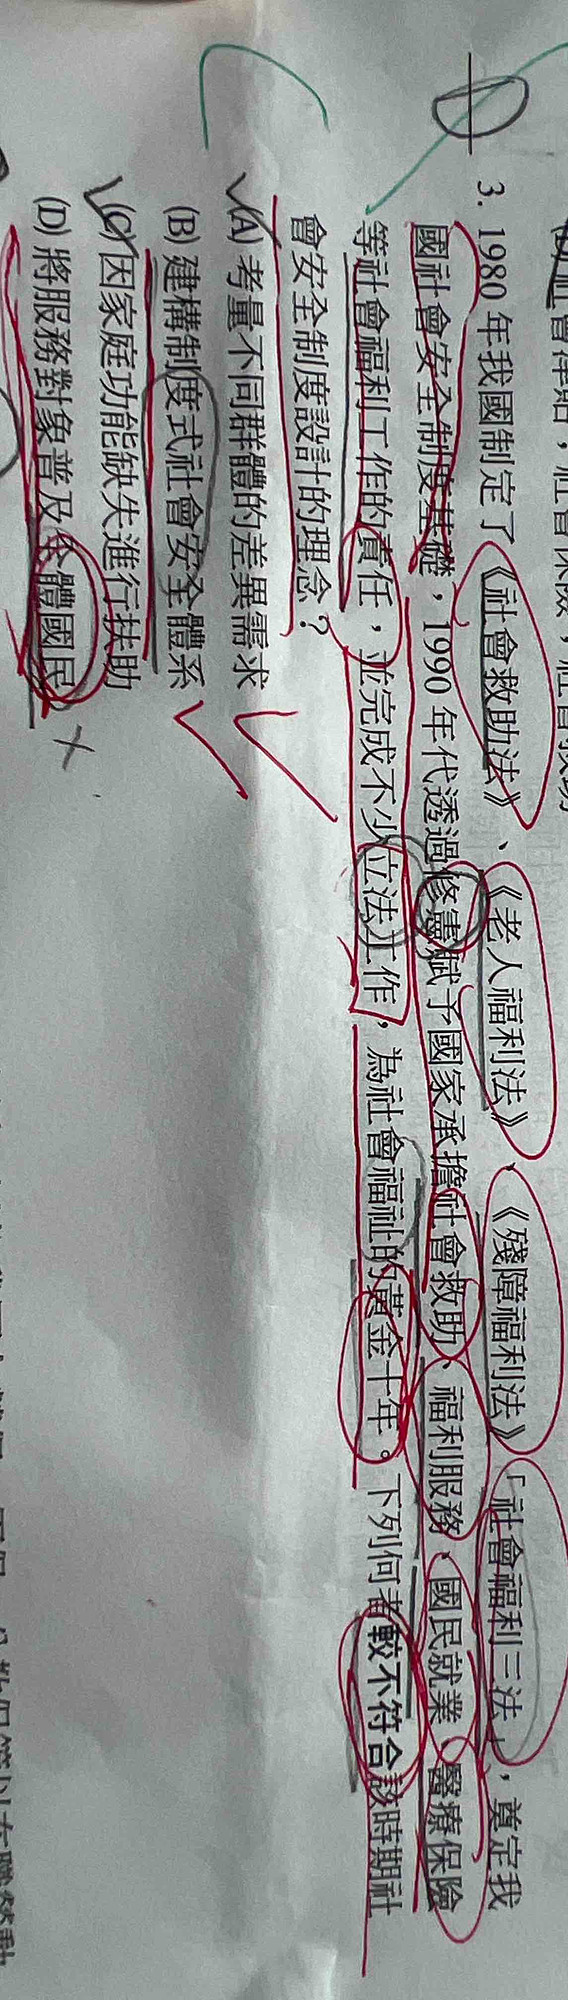 3. 1980 年我國制定了《社會救助法》、《老人福利法》、《殘障福利法》「社會福利三法」，奠定我
國社會安全制度基礎，1990 年代透過修憲賦予國家承擔社會救助、福利服務、國民就業、醫療保險
等社會福利工作的責任，並完成不少立法工作，為社會福祉的黃金十年。下列何者較不符合該時期社
會安全制度設計的理念？
(A) 考量不同群體的差異需求
(B) 建構制度式社會安全體系
(C) 因家庭功能缺失進行扶助
(D) 將服務對象普及全體國民